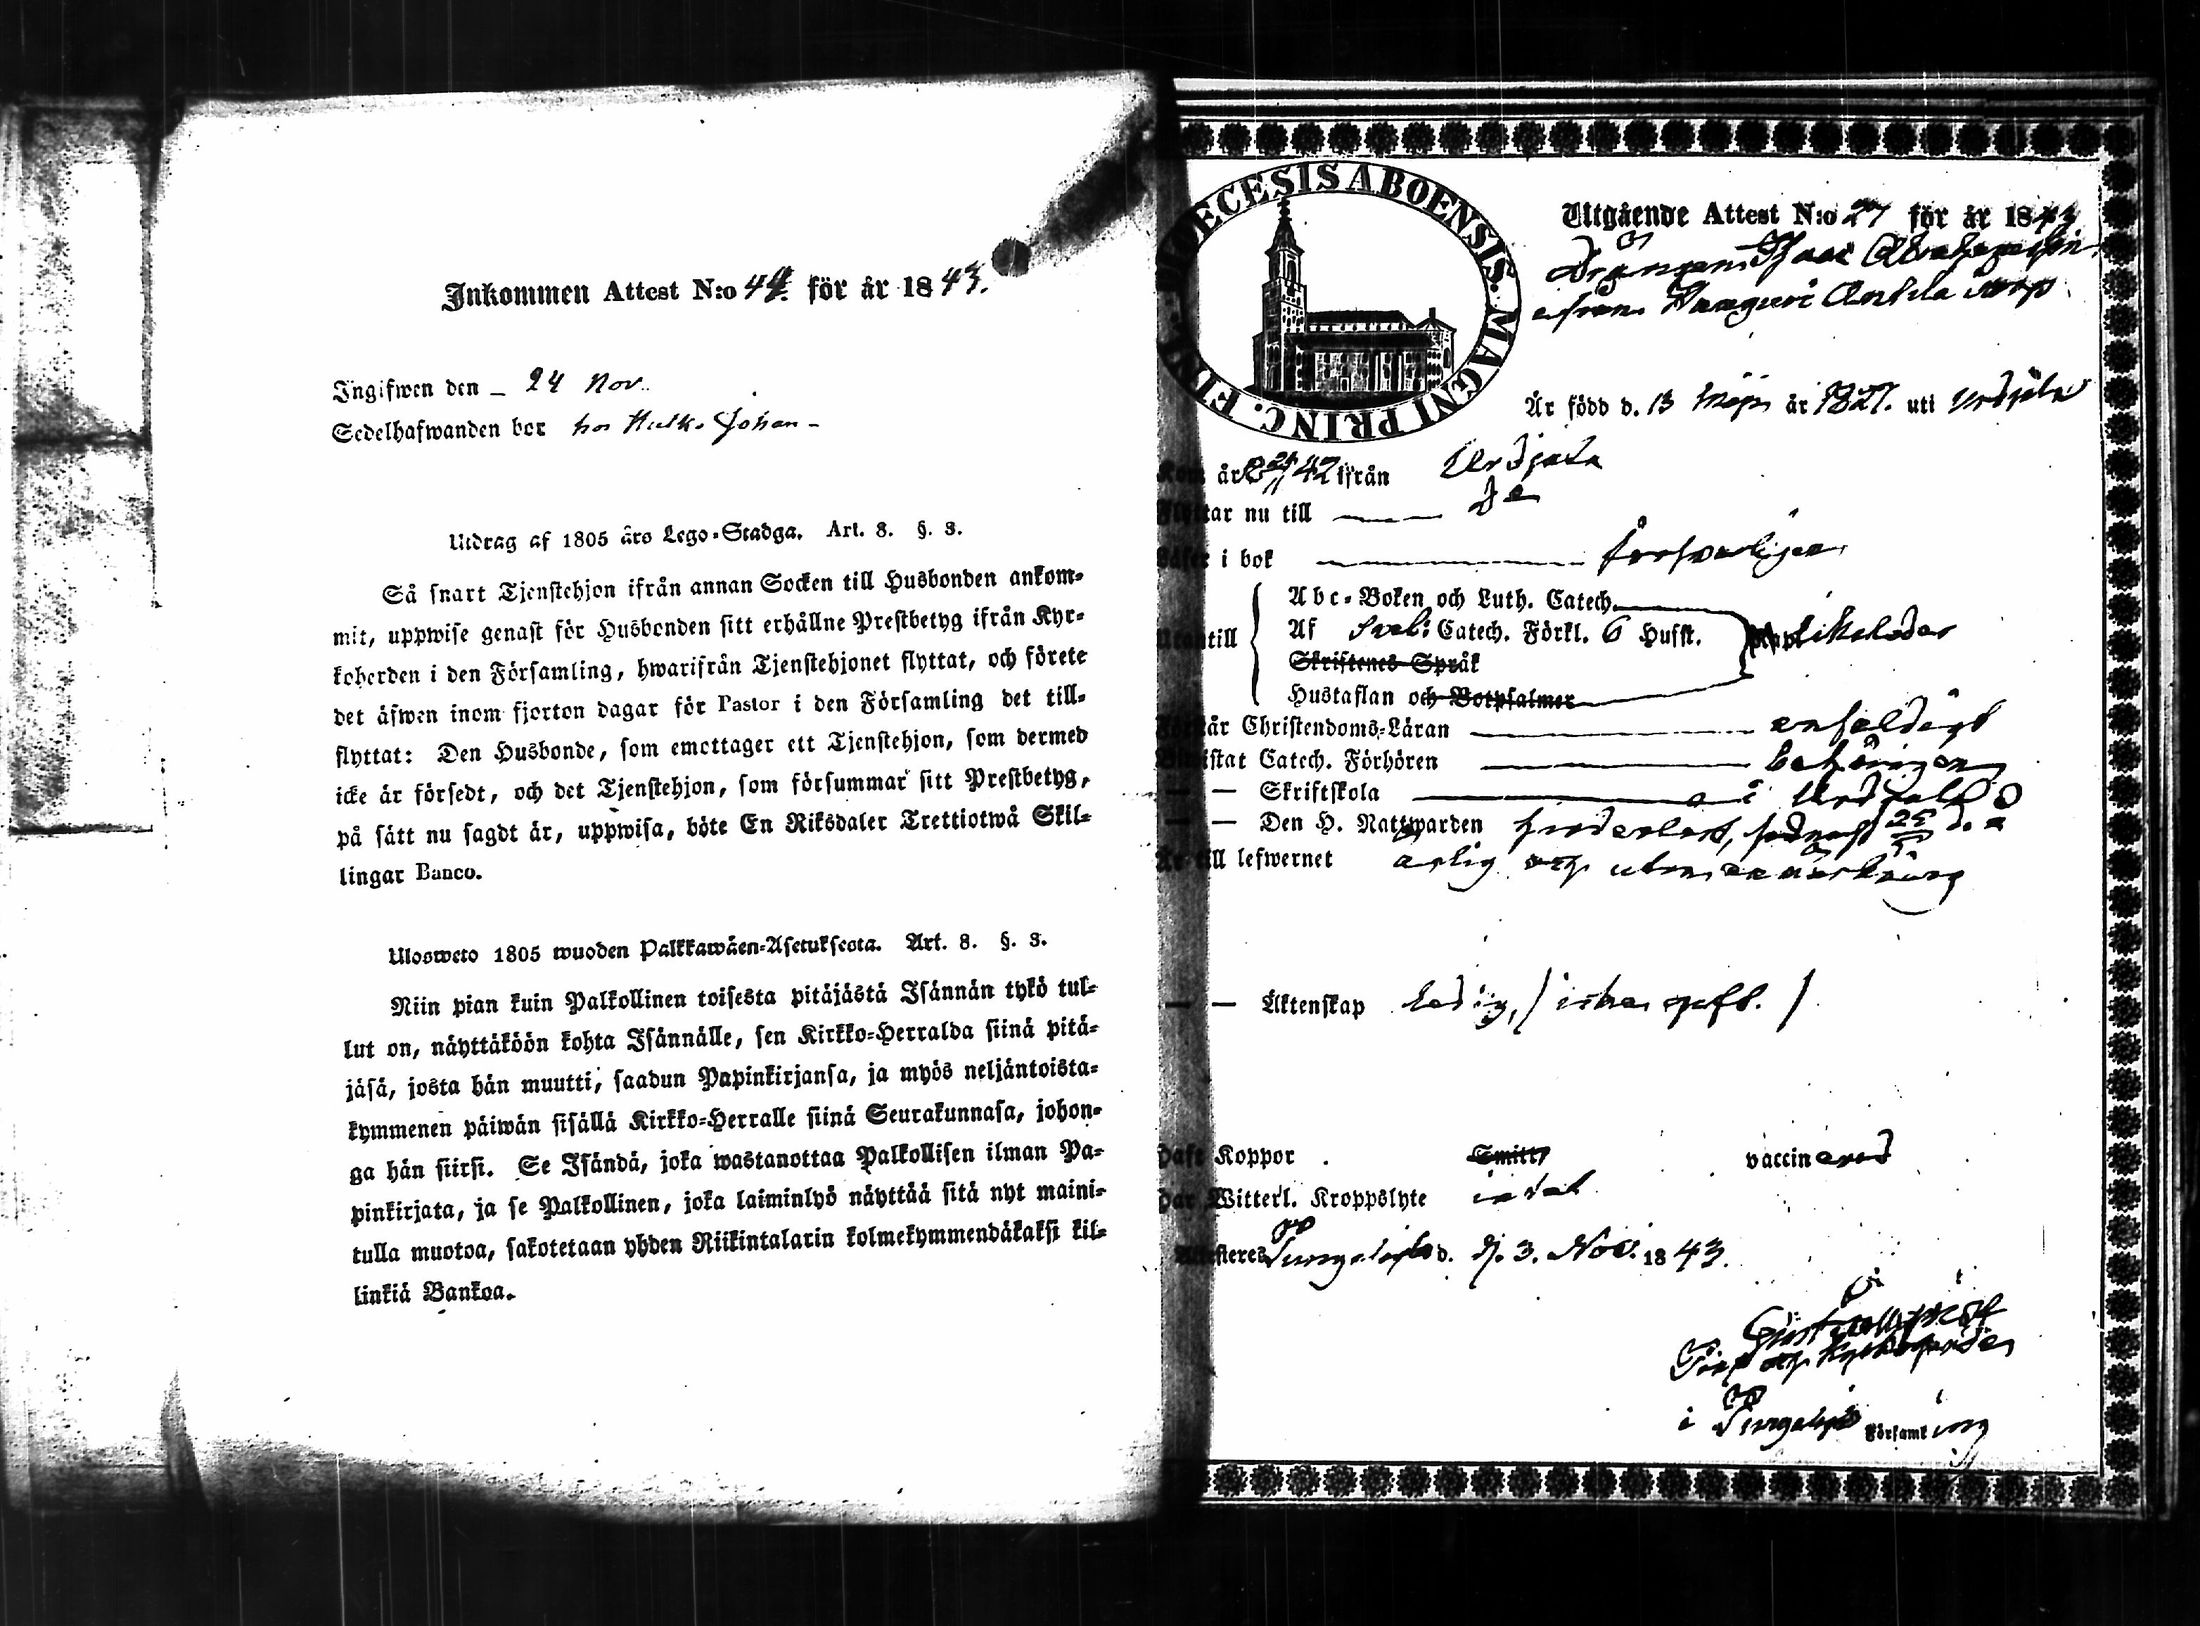 Inkommen Attest N:o 44. för år 1843.
Ingifwen den – 24 Nov.
Sedelhafwanden bor hos Johan –
Utdrag af 1805 års Lego-Stadga. Art. 8. §. 3.
Så snart Tjenstehjon ifrån annan Socken till Husbonden ankom-
mit, uppwise genast för Husbonden sitt erhållne Prestbetyg ifrån Kyr-
koherden i den Församling, hwarifrån Tjenstehjonet flyttat, och förete
det äfwen inom fjorton dagar för Pastor i den Församling det till-
flyttat: Den Husbonde, som emottager ett Tjenstehjon, som dermed
icke är försedt, och det Tjenstehjon, som försummar sitt Prestbetyg,
på sätt nu sagdt är, uppwisa, böte En Riksdaler Trettiotwå Skil-
lingar Banco.
Ulosweto 1805 wuoden Palkkawäen-Asetuksesta. Art. 8. §. 3.
Niin pian kuin Palkollinen toisesta pitäjästä Isännän tykö tul-
lut on, näyttäköön kohta Isännälle, sen Kirkko-Herralda siinä pitä-
jäsä, josta hän muutti, saadun Papinkirjansa, ja myös neljäntoista-
kymmenen päiwän sisällä Kirkko-Herralle siinä Seurakunnasa, johon-
ga hän siirsi. Se Isändä, joka wastanottaa Palkollisen ilman Pa-
pinkirjata, ja se Palkollinen, joka laiminlyö näyttää sitä nyt maini-
tulla muotoa, sakotetaan yhden Riikintalarin kolmekymmendäkaksi kil-
linkiä Bankoa.
DIOECESIS ABOENSIS. MAGNI PRINC. FINL.
Utgående Attest N:o 27 för år 1843
Drängen Isaac
ifrån
Är född d. 13 år 1827. uti Urdjala
Kom år 42 ifrån Urdjala
Flyttar nu till —
Läser i bok — försvarligen
Utantill
Abc-Boken och Luth. Catech.
Af Sveb: Catech. Förkl. 6 Hufst.
Skriftenes Språk
Hustaflan och Botpsalmer
Förstår Christendoms-Läran — enfaldigt
Bewistat Catech. Förhören — behörigen
— — Skriftskola — i Urdjala
— — Den H. Nattwarden
Är till lefwernet ärlig och utan anmärkning
— — Äktenskap ledig, / icke /
Haft Koppor . Smitt vaccinerad
Har Witterl. Kroppslyte intet
Attesteres Pungalaitio d. 3. Nov. 1843.
Kyrkoherde
i Pungalaitio Församling